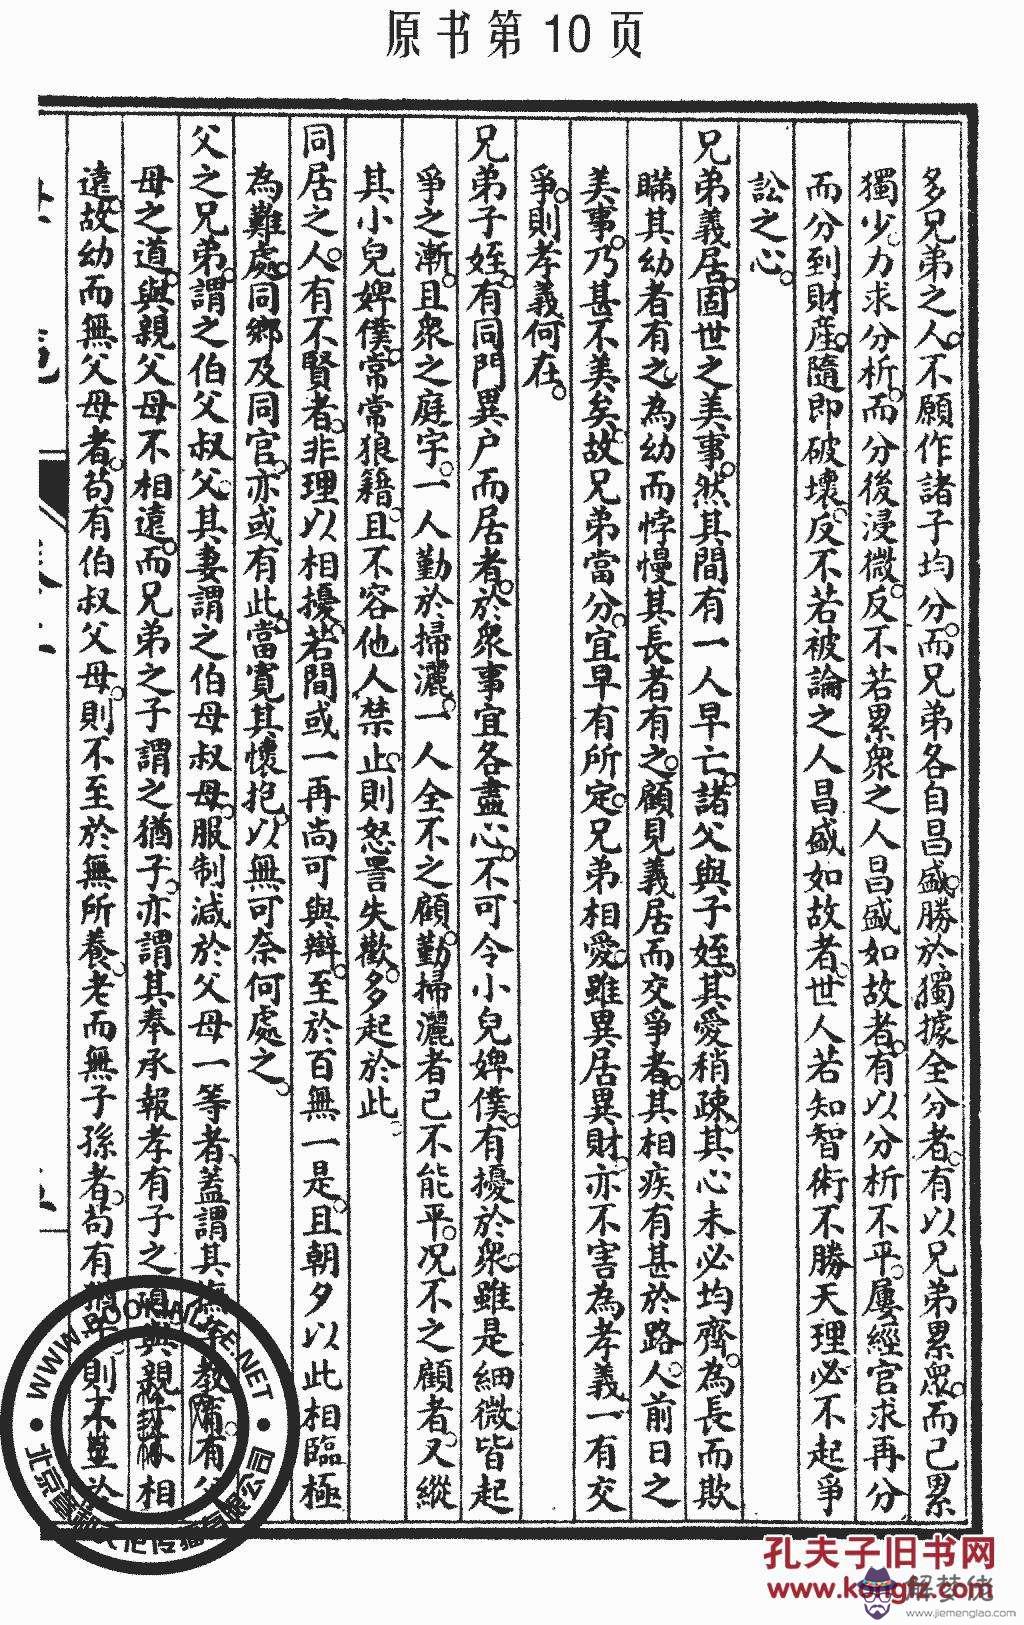 原书第10页
多兄弟之人不願作諸子均分而兄弟各自昌盛勝於獨據全分者有以兄弟累衆而己累
獨少力求分析而分後浸微反不若累衆之人昌盛如故者有以分析不平屢經官求再分
而分到財產隨即破壞反不若被論之人昌盛如故者世人若知智術不勝天理必不起爭
訟之心
兄弟義居固世之美事然其間有一人早亡諸父與子姪其愛稍疎其心未必均齊為長而欺
瞞其幼者有之為幼而悖慢其長者有之顧見義居而交爭者其相疾有甚於路人前日之
美事乃甚不美矣故兄弟當分宜早有所定兄弟相愛雖異居異財亦不害為孝義一有交
爭則孝義何在
兄弟子姪有同門異户而居者於衆事宜各盡心不可令小兒婢僕有擾於衆雖是細微皆起
爭之漸且衆之庭宇一人勤於掃灑一人全不之顧勤掃灑者已不能平況不之顧者又縱
其小兒婢僕常常狼籍且不容他人禁止則怒詈失歡多起於此
同居之人有不賢者非理以相擾若間或一再尚可與辯至於百無一是且朝夕以此相臨極
為難處同鄉及同官亦或有此當寬其懷抱以無可奈何處之
父之兄弟謂之伯父叔父其妻謂之伯母叔母服制减於父母一等者蓋謂其撫字教育有父
母之道與親父母不相遠而兄弟之子謂之猶子亦謂其奉承報孝有子之道與親子不相
遠故幼而無父母者苟有伯叔父母則不至於無所養老而無子孫者苟有猶子則不至於
WWW.BOOKINLIFE.NET
孔夫子旧书网
www.kongfz.com
解梦佬
www.jiemenglao.com